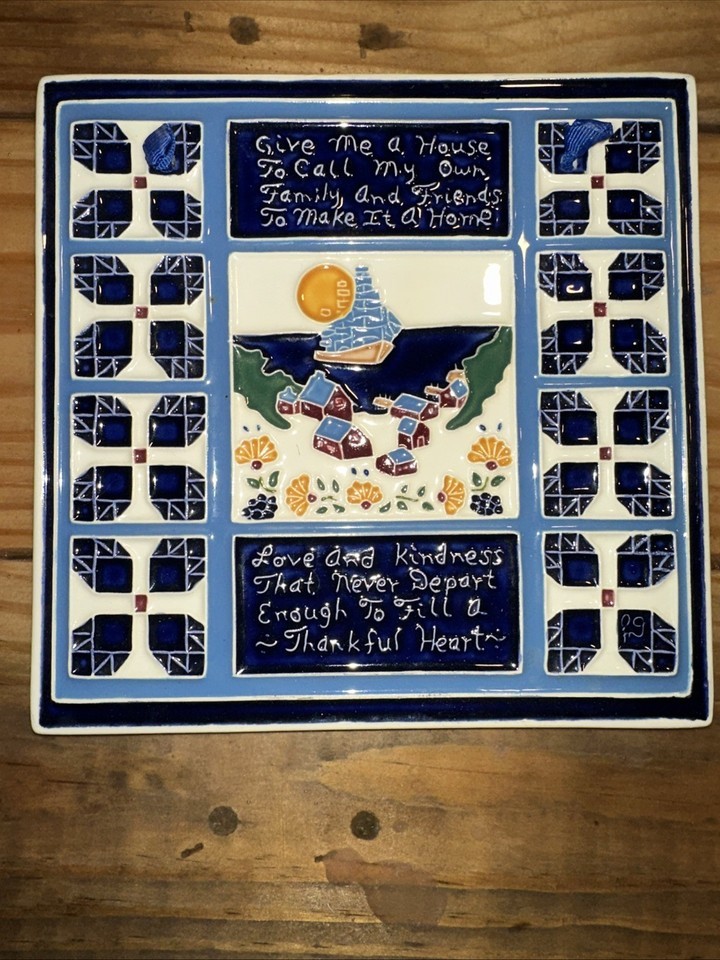 Give Me a House
To Call My Own,
Family And Friends
To Make It A Home.
Love and kindness
That Never Depart
Enough To Fill a
~ Thankful Heart ~